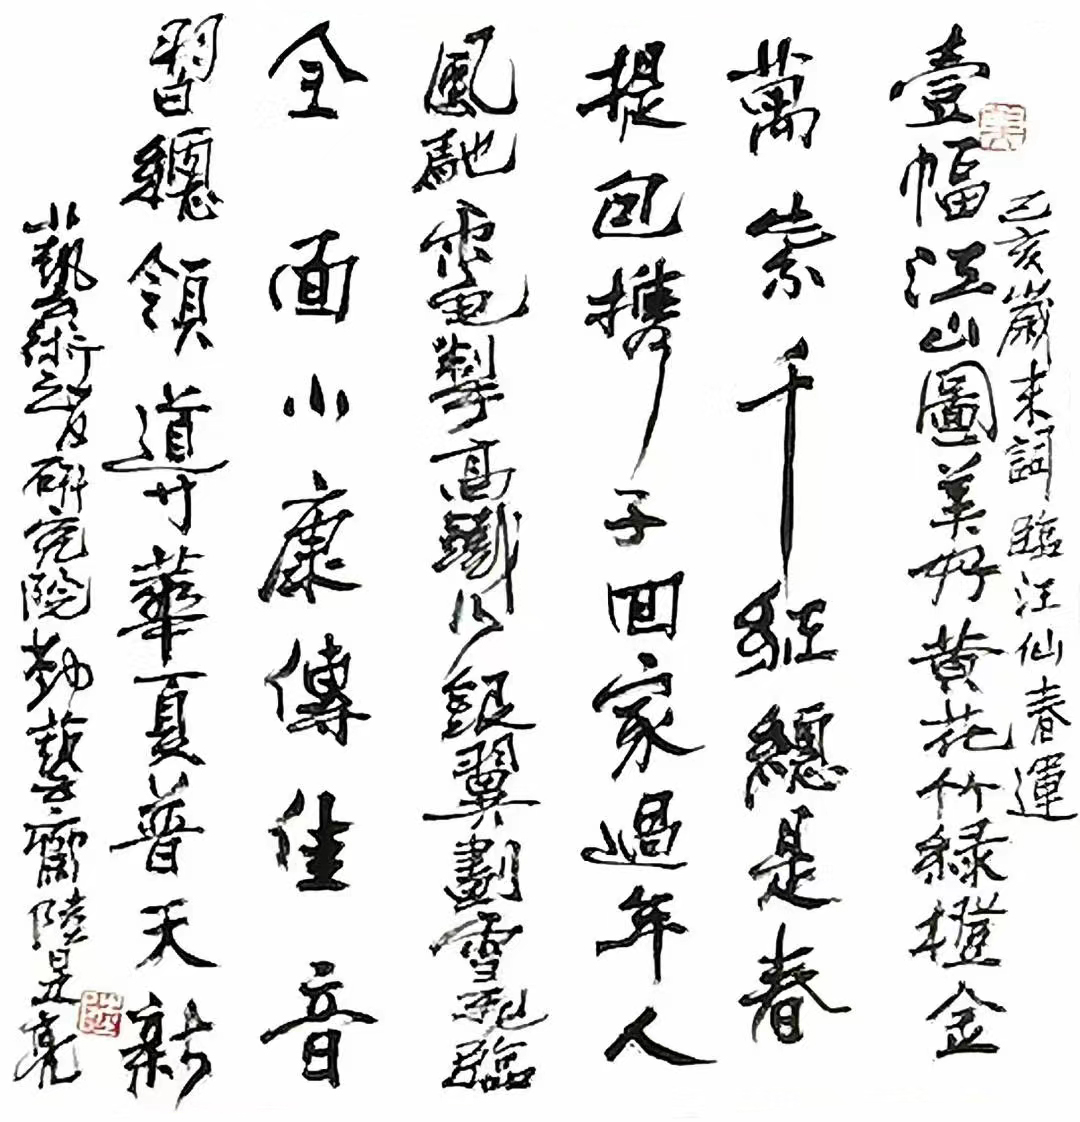 己亥歲末詞臨江仙春運
壹幅江山圖美好黄花竹緑橙金
萬紫千红總是春
提包攜子回家過年人
風馳電掣高鐵銀翼劃雪飛臨
全面小康傳佳音
習總領導華夏普天新
藝術研究院勤藝齋陸是亮